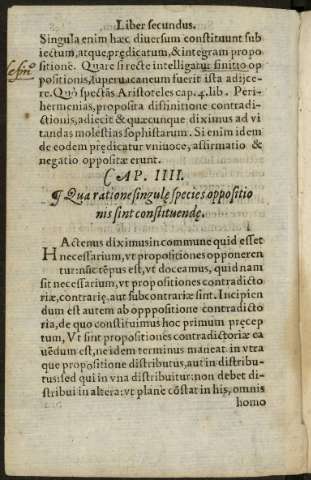 Liber secundus.
Singula enim hæc diuersum constituunt sub
iectum, atque, prędicatum, & integram propo
sitionē. Quare si recte intelligatur finitio op
positionis, superuacaneum fuerit ista adijce-
re. Quò spectãs Aristoteles cap. 4. lib. Peri-
hermenias, proposita diffinitione contradi-
ctionis, adiecit & quæcunque diximus ad vi
tandas molestias sophistarum. Si enim idem
de eodem prędicatur vniuoce, affirmatio &
negatio oppositæ erunt.
CAP. IIII.
¶ Qua ratione singulę species oppositio
nis sint constituendę.
HActenus diximus in commune quid esset
necessarium, vt propositiones opponeren
tur: nũc tẽpus est, vt doceamus, quid nam
sit necessarium, vt propositiones contradicto
riæ, contrarię, aut subcontrariæ sint. Incipien
dum est autem ab opppositione contradicto
ria, de quo constituimus hoc primum pręcep
tum, Vt sint propositiones contradictoriæ ca
uẽdum est, ne idem terminus maneat in vtra
que propositione distributus, aut in distribu-
tus: sed qui in vna distribuitur: non debet di-
stribui in altera: vt planè cõstat in his, omnis
homo